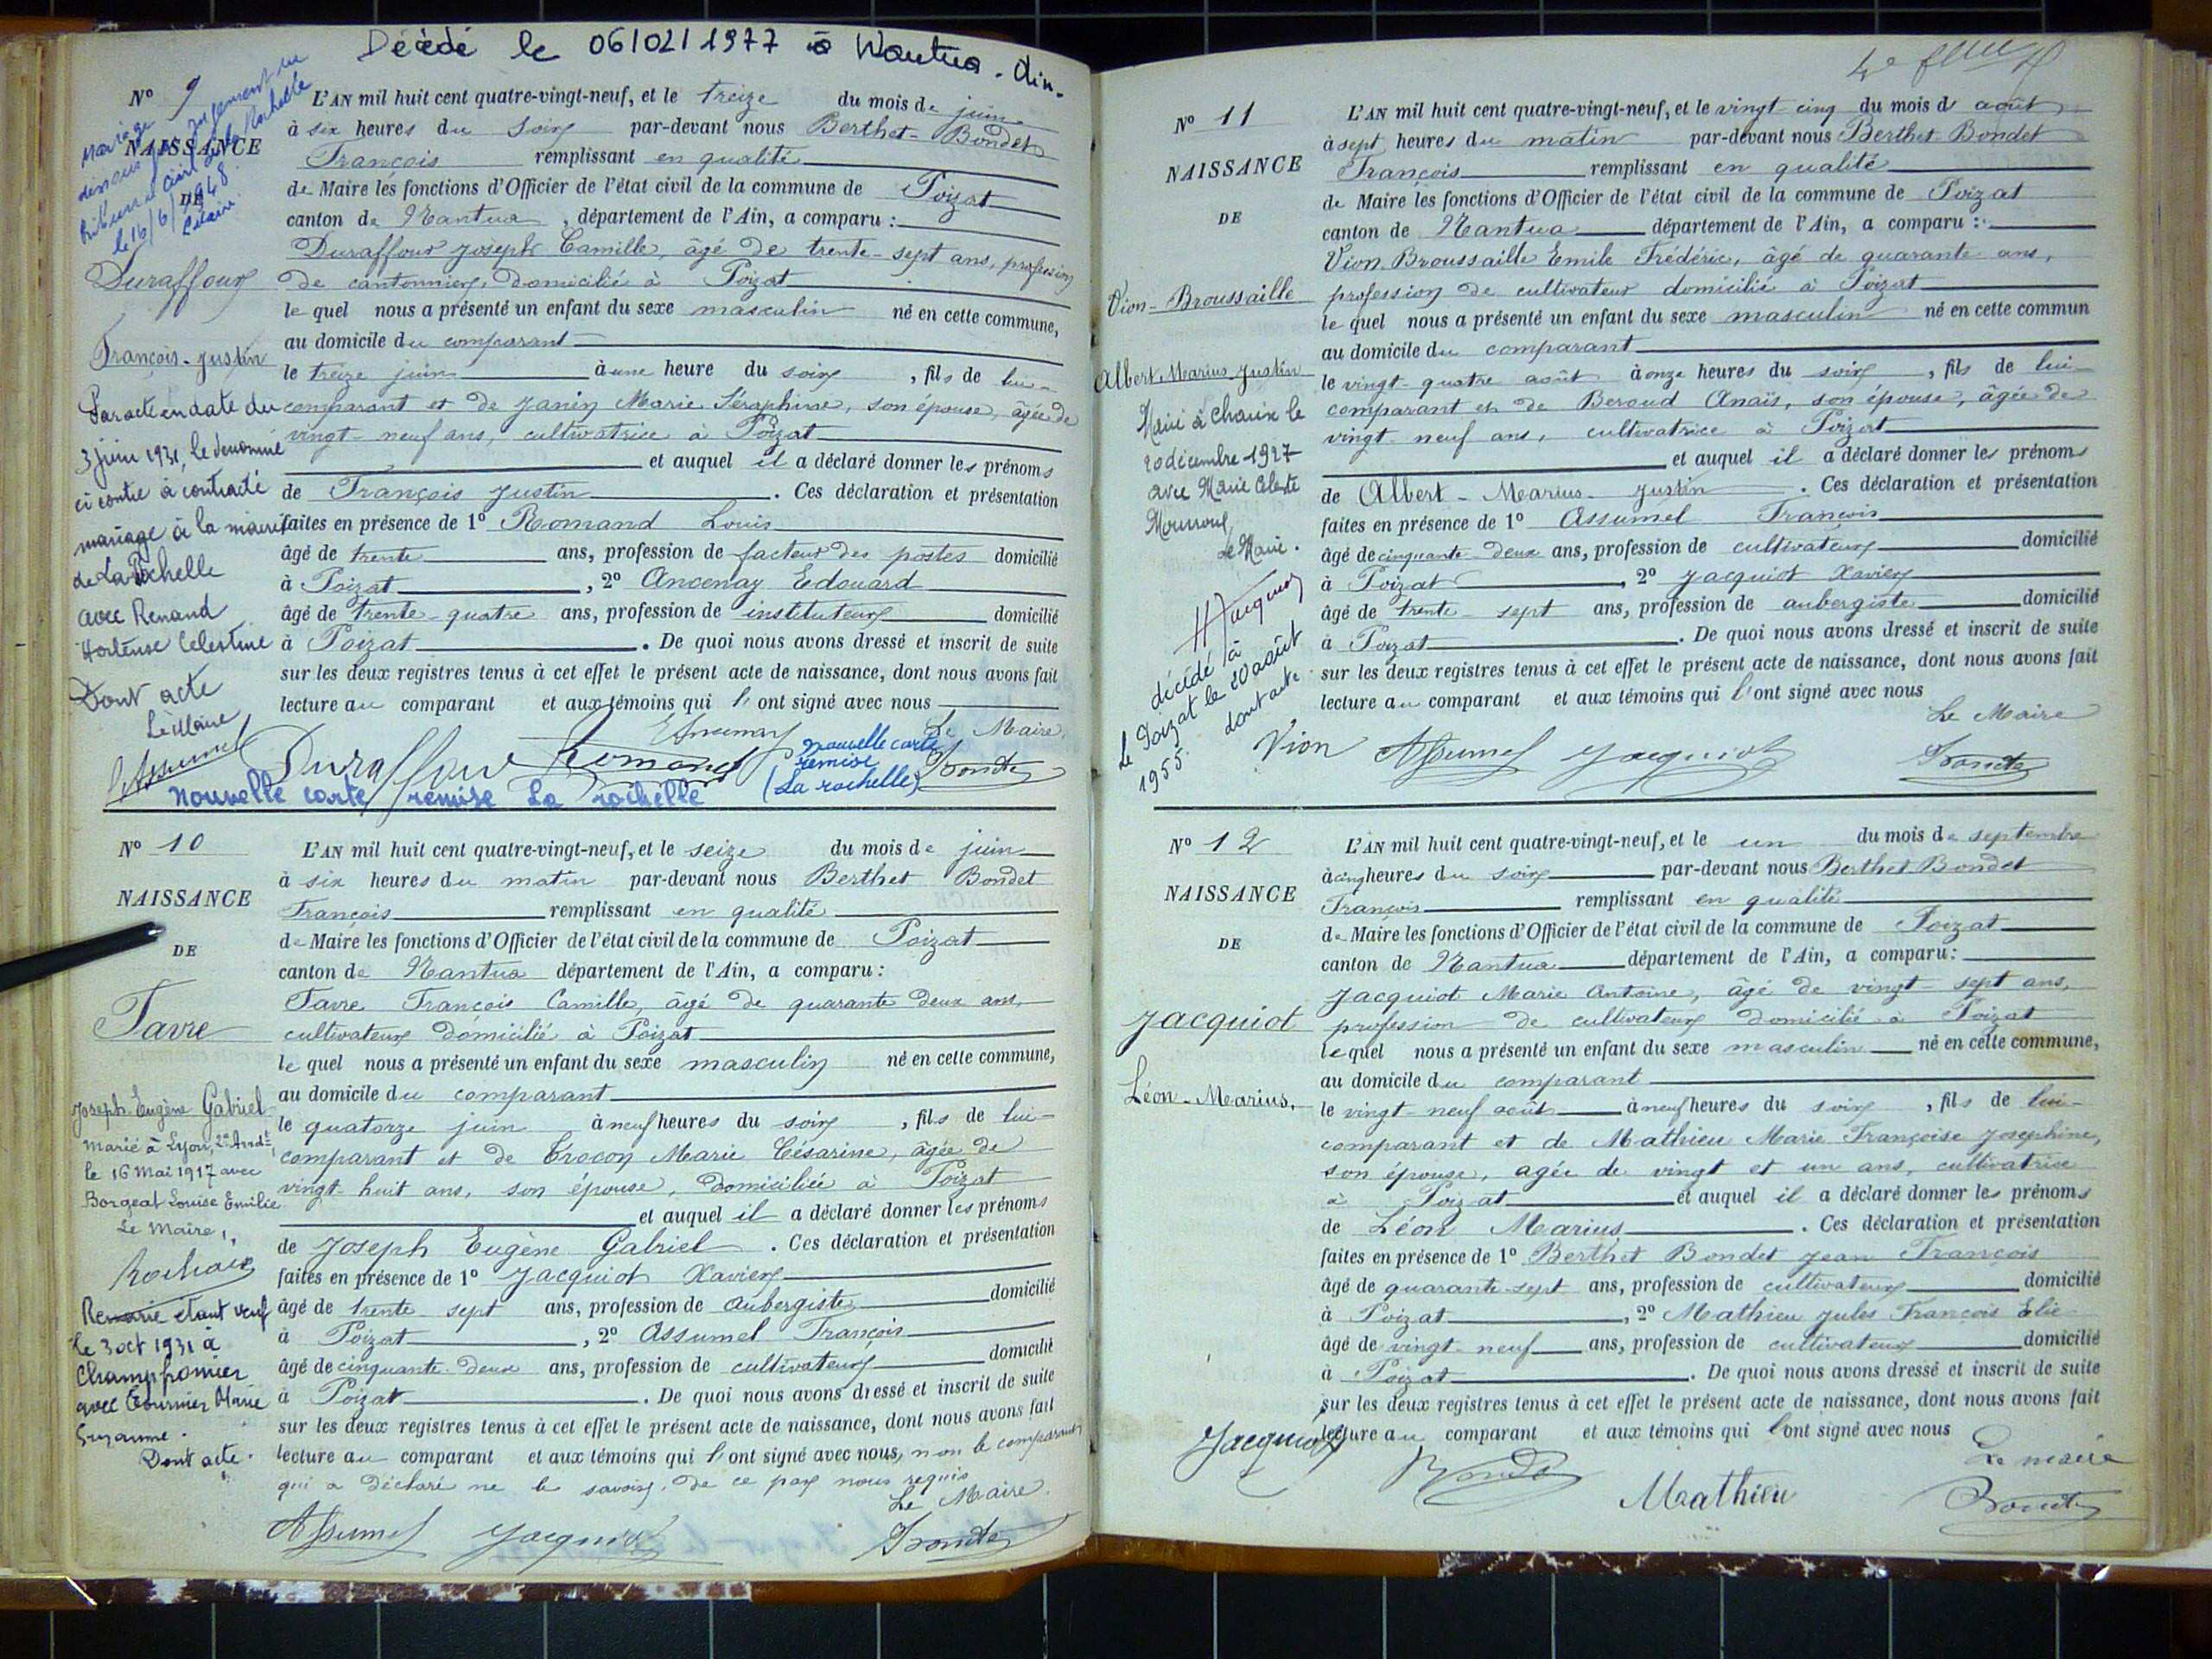 Décédé le 06/02/1977 à Nantua. Ain.
Nº 9
NAISSANCE
Mariage
dissous par jugement du
tribunal civil de la Rochelle
le 16/6/1948
Duraffour
François-Justin
Par acte en date du
3 juin 1931, le dénommé
ci contre à contracté
mariage à la mairie
de La Rochelle
avec Renand
Hortense Celestine
Dont acte
Le Maire
L'AN mil huit cent quatre-vingt-neuf, et le treize du mois de juin
à six heures du soir par-devant nous Berthet-Bondet
François remplissant en qualité
de Maire les fonctions d'Officier de l'état civil de la commune de Poizat
canton de Nantua, département de l'Ain, a comparu :
Duraffour Joseph Camille, âgé de trente-sept ans, profession
de cantonnier, domicilié à Poizat
le quel nous a présenté un enfant du sexe masculin né en cette commune,
au domicile du comparant
le treize juin à une heure du soir, fils de lui-
comparant et de Janin Marie Séraphine, son épouse, âgée de
vingt-neuf ans, cultivatrice à Poizat
et auquel il a déclaré donner les prénoms
de François Justin. Ces déclaration et présentation
faites en présence de 1º Romand Louis
âgé de trente ans, profession de facteur des postes domicilié
à Poizat, 2º Ancenay Edouard
âgé de trente-quatre ans, profession de instituteur domicilié
à Poizat. De quoi nous avons dressé et inscrit de suite
sur les deux registres tenus à cet effet le présent acte de naissance, dont nous avons fait
lecture au comparant et aux témoins qui l'ont signé avec nous
Le Maire
Assumel Duraffour Romand Ancenay Bondet
nouvelle carte
remise
(La rochelle)
Nouvelle carte remise La rochelle
Nº 10
NAISSANCE
DE
Favre
Joseph-Eugène Gabriel
Marié à Lyon, 2e Arrdt
le 16 Mai 1917 avec
Borgeat Louise Emilie
Le Maire,
Remarié étant veuf
le 3 oct 1931 à
Champfromier
avec Tournier Marie
Suzanne.
Dont acte.
L'AN mil huit cent quatre-vingt-neuf, et le seize du mois de juin
à six heures du matin par-devant nous Berthet Bondet
François remplissant en qualité
de Maire les fonctions d'Officier de l'état civil de la commune de Poizat
canton de Nantua département de l'Ain, a comparu :
Favre François Camille, âgé de quarante deux ans,
cultivateur domicilié à Poizat
le quel nous a présenté un enfant du sexe masculin né en cette commune,
au domicile du comparant
le quatorze juin à neuf heures du soir, fils de lui-
comparant et de Crocon Marie Césarine, âgée de
vingt-huit ans, son épouse, domiciliée à Poizat
et auquel il a déclaré donner les prénoms
de Joseph Eugène Gabriel. Ces déclaration et présentation
faites en présence de 1º Jacquiot Xavier
âgé de trente sept ans, profession de aubergiste domicilié
à Poizat, 2º Assumel François
âgé de cinquante-deux ans, profession de cultivateur domicilié
à Poizat. De quoi nous avons dressé et inscrit de suite
sur les deux registres tenus à cet effet le présent acte de naissance, dont nous avons fait
lecture au comparant et aux témoins qui l'ont signé avec nous, non le comparant
qui a déclaré ne le savoir, de ce par nous requis
Le Maire.
Assumel Jacquiot Bondet
Nº 11
NAISSANCE
DE
Vion-Broussaille
Albert-Marius-Justin
Marié à Charix le
20 décembre 1927
avec Marie Celeste
Le Maire.
décédé à
Le Poizat le 20 août
1955. dont acte
L'AN mil huit cent quatre-vingt-neuf, et le vingt cinq du mois d août
à sept heures du matin par-devant nous Berthet-Bondet
François remplissant en qualité
de Maire les fonctions d'Officier de l'état civil de la commune de Poizat
canton de Nantua département de l'Ain, a comparu :
Vion-Broussaille Emile Frédéric, âgé de quarante ans,
profession de cultivateur domicilié à Poizat
le quel nous a présenté un enfant du sexe masculin né en cette commun
au domicile du comparant
le vingt-quatre août à onze heures du soir, fils de lui-
comparant et de Beroud Anaïs, son épouse, âgée de
vingt-neuf ans, cultivatrice à Poizat
et auquel il a déclaré donner les prénoms
de Albert-Marius-Justin. Ces déclaration et présentation
faites en présence de 1º Assumel François
âgé de cinquante-deux ans, profession de cultivateur domicilié
à Poizat, 2º Jacquiot Xavier
âgé de trente-sept ans, profession de aubergiste domicilié
à Poizat. De quoi nous avons dressé et inscrit de suite
sur les deux registres tenus à cet effet le présent acte de naissance, dont nous avons fait
lecture au comparant et aux témoins qui l'ont signé avec nous
Le Maire
Vion Assumel Jacquiot Bondet
Nº 12
NAISSANCE
DE
Jacquiot
Léon-Marius.
L'AN mil huit cent quatre-vingt-neuf, et le un du mois de septembre
à cinq heures du soir par-devant nous Berthet-Bondet
François remplissant en qualité
de Maire les fonctions d'Officier de l'état civil de la commune de Poizat
canton de Nantua département de l'Ain, a comparu :
Jacquiot Marie Antoine, âgé de vingt-sept ans,
profession de cultivateur domicilié à Poizat
le quel nous a présenté un enfant du sexe masculin né en cette commune,
au domicile du comparant
le vingt-neuf août à neuf heures du soir, fils de lui-
comparant et de Mathieu Marie Françoise Josephine,
son épouse, agée de vingt et un ans, cultivatrice
à Poizat et auquel il a déclaré donner les prénoms
de Léon Marius. Ces déclaration et présentation
faites en présence de 1º Berthet Bondet Jean François
âgé de quarante-sept ans, profession de cultivateur domicilié
à Poizat, 2º Mathieu Jules François Elie
âgé de vingt-neuf ans, profession de cultivateur domicilié
à Poizat. De quoi nous avons dressé et inscrit de suite
sur les deux registres tenus à cet effet le présent acte de naissance, dont nous avons fait
lecture au comparant et aux témoins qui l'ont signé avec nous
Le maire
Jacquiot Bondet Mathieu Bondet